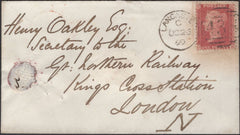 Henry Oakley Esq:
Secretary to the
Gt. Northern Railway
Kings Cross Station
London
N